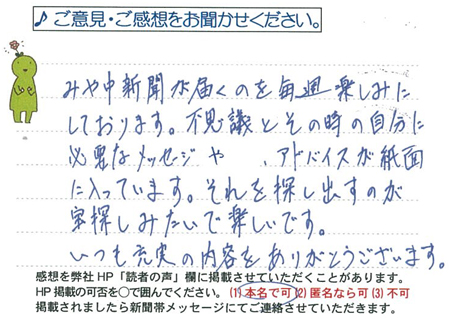 ♪ご意見・ご感想をお聞かせください。
みや中新聞が届くのを毎週楽しみに
しております。不思議とその時の自分に
必要なメッセージや、アドバイスが紙面
に入っています。それを探し出すのが
宝探しみたいで楽しいです。
いつも充実の内容をありがとうございます。
感想を弊社HP「読者の声」欄に掲載させていただくことがあります。
HP掲載の可否を○で囲んでください。(1)本名で可(2)匿名なら可(3)不可
掲載されましたら新聞帯メッセージにてご連絡させていただきます。